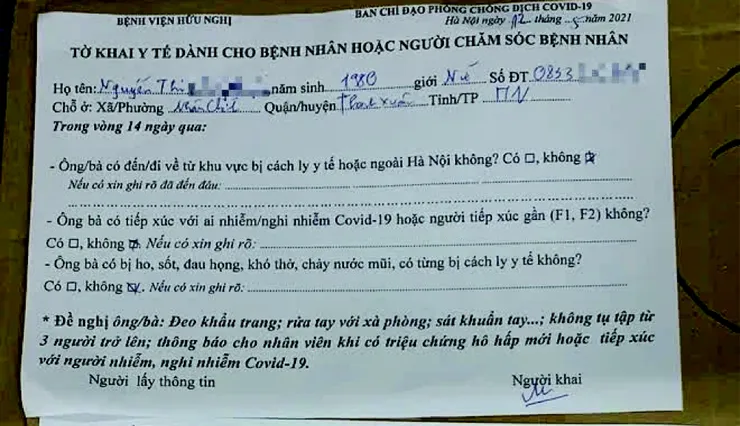 BỆNH VIỆN HỮU NGHỊ
BAN CHỈ ĐẠO PHÒNG CHỐNG DỊCH COVID-19
Hà Nội ngày 12 tháng 5 năm 2021
TỜ KHAI Y TẾ DÀNH CHO BỆNH NHÂN HOẶC NGƯỜI CHĂM SÓC BỆNH NHÂN
Họ tên: Nguyễn Thị năm sinh 1980 giới Nữ Số ĐT 0853
Chỗ ở: Xã/Phường Nhân Chính Quận/huyện Thanh Xuân Tỉnh/TP HN
Trong vòng 14 ngày qua:
- Ông/bà có đến/đi về từ khu vực bị cách ly y tế hoặc ngoài Hà Nội không? Có □, không ☒
Nếu có xin ghi rõ đã đến đâu:
- Ông bà có tiếp xúc với ai nhiễm/nghi nhiễm Covid-19 hoặc người tiếp xúc gần (F1, F2) không?
Có □, không ☒ Nếu có xin ghi rõ:
- Ông bà có bị ho, sốt, đau họng, khó thở, chảy nước mũi, có từng bị cách ly y tế không?
Có □, không ☒. Nếu có xin ghi rõ:
* Đề nghị ông/bà: Đeo khẩu trang; rửa tay với xà phòng; sát khuẩn tay...; không tụ tập từ
3 người trở lên; thông báo cho nhân viên khi có triệu chứng hô hấp mới hoặc tiếp xúc
với người nhiễm, nghi nhiễm Covid-19.
Người lấy thông tin
Người khai